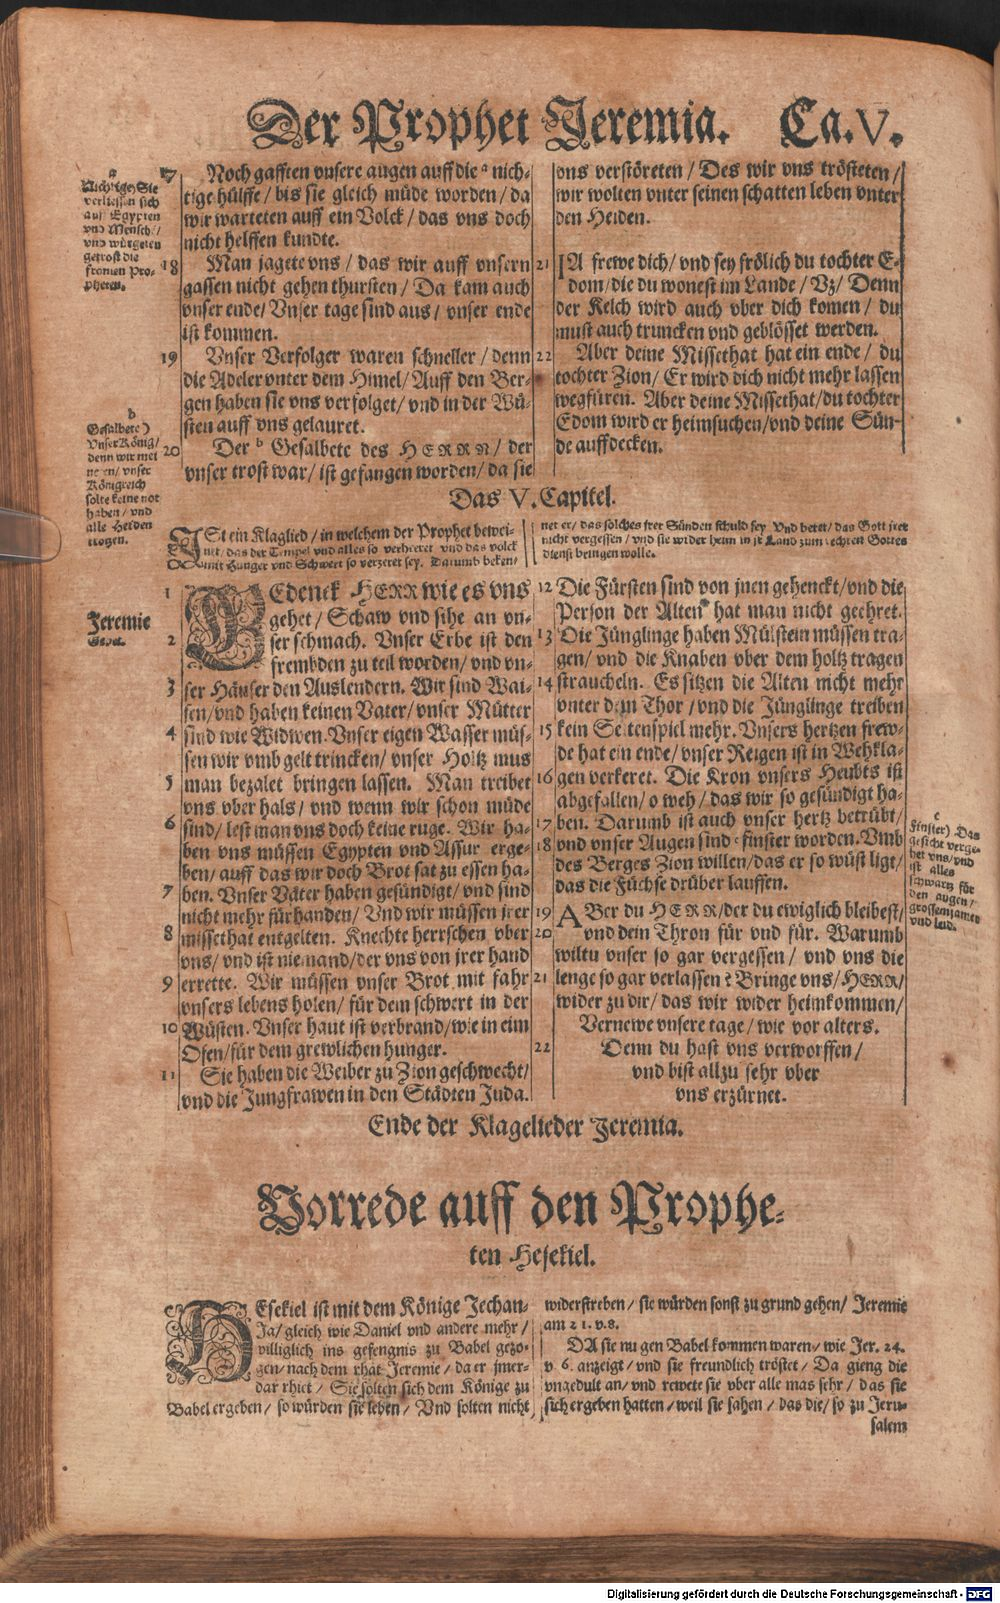 Der Prophet Jeremia. Ca. V.
a
Nichtige) Sie
verliessen sich
auf Egypten
vnd Mensch/
vnd würgeten
getrost die
fromen Pro-
pheten.
17 Noch gafften vnsere augen auff die a nich-
tige hülffe / bis sie gleich müde worden / da
wir warteten auff ein Volck / das vns doch
nicht helffen kundte.
18 Man jagete vns / das wir auff vnsern
gassen nicht gehen thursten / Da kam auch
vnser ende / Vnser tage sind aus / vnser ende
ist kommen.
19 Vnser Verfolger waren schneller / denn
die Adeler vnter dem Himel / Auff den Ber-
gen haben sie vns verfolget / vnd in der Wü-
sten auff vns gelauret.
b
Gesalbete)
Vnser König /
denn wir mei
neten / vnser
Königreich
solte keine not
haben / vnd
alle Heiden
trotzen.
20 Der b Gesalbete des HERRN / der
vnser trost war / ist gefangen worden / da sie
vns verstöreten / Des wir vns trösteten /
wir wolten vnter seinen schatten leben vnter
den Heiden.
21 JA frewe dich / vnd sey frölich du tochter E-
dom / die du wonest im Lande / Vz / Denn
der Kelch wird auch vber dich komen / du
must auch truncken vnd geblösset werden.
22 Aber deine Missethat hat ein ende / du
tochter Zion / Er wird dich nicht mehr lassen
wegfüren. Aber deine Missethat / du tochter
Edom wird er heimsuchen / vnd deine Sün-
de auffdecken.
Das V. Capitel.
ISt ein Klaglied / in welchem der Prophet bewei-
nit / das der Tempel vnd alles so verheret vnd das volck
mit Hunger vnd Schwert so verzeret sey. Darumb beken /
net er / das solches jrer Sünden schuld sey Vnd betet / das Gott jrer
nicht vergessen / vnd sie wider heim in jr Land zum rechten Gottes
dienst bringen wolle.
Jeremie
Gebet.
1 GEdenck HERR wie es vns
gehet / Schaw vnd sihe an vn-
2 ser schmach. Vnser Erbe ist den
frembden zu teil worden / vnd vn-
3 ser Häuser den Auslendern. Wir sind Wai-
sen / vnd haben keinen Vater / vnser Mütter
4 sind wie Widwen. Vnser eigen Wasser müs-
sen wir vmb gelt trincken / vnser Holtz mus
5 man bezalet bringen lassen. Man treibet
vns vber hals / vnd wenn wir schon müde
6 sind / lest man vns doch keine ruge. Wir ha-
ben vns müssen Egypten vnd Assur erge-
ben / auff das wir doch Brot sat zu essen ha-
7 ben. Vnser Väter haben gesündigt / vnd sind
nicht mehr fürhanden / Vnd wir müssen jrer
8 missethat entgelten. Knechte herrschen vber
vns / vnd ist niemand / der vns von jrer hand
9 errette. Wir müssen vnser Brot mit fahr
vnsers lebens holen / für dem schwert in der
10 Wüsten. Vnser haut ist verbrand / wie in eim
Ofen / für dem grewlichen hunger.
11 Sie haben die Weiber zu Zion geschwecht /
vnd die Jungfrawen in den Städten Juda.
12 Die Fürsten sind von jnen gehenckt / vnd die
Person der Alten hat man nicht geehret.
13 Die Jünglinge haben Mülstein müssen tra-
gen / vnd die Knaben vber dem holtz tragen
14 straucheln. Es sitzen die Alten nicht mehr
vnter dem Thor / vnd die Jünglinge treiben
15 kein Seitenspiel mehr. Vnsers hertzen frew-
de hat ein ende / vnser Reigen ist in Wehkla-
16 gen verkeret. Die Kron vnsers Heubts ist
abgefallen / o weh / das wir so gesündigt ha-
17 ben. Darumb ist auch vnser hertz betrübt /
18 vnd vnser Augen sind c finster worden. Vmb
des Berges Zion willen / das er so wüst ligt /
das die Füchse drüber lauffen.
c
Finster) Das
gesicht verge-
het vns / vnd
ist alles
schwartz für
den augen /
grossen jamer
vnd leid.
19 ABer du HERR / der du ewiglich bleibest /
20 vnd dein Thron für vnd für. Warumb
wiltu vnser so gar vergessen / vnd vns die
21 lenge so gar verlassen? Bringe vns / HERR /
wider zu dir / das wir wider heimkommen /
Vernewe vnsere tage / wie vor alters.
22 Denn du hast vns verworffen /
vnd bist allzu sehr vber
vns erzürnet.
Ende der Klagelieder Jeremia.
Vorrede auff den Prophe-
ten Hesekiel.
HEsekiel ist mit dem Könige Jechan-
Ja / gleich wie Daniel vnd andere mehr /
villiglich ins gefengnis zu Babel gezo-
gen / nach dem rhat Jeremie / da er jmer-
dar rhiet / Sie solten sich dem Könige zu
Babel ergeben / so würden sie leben / Vnd solten nicht
widerstreben / sie würden sonst zu grund gehen / Jeremie
am 21. v. 8.
DA sie nu gen Babel kommen waren / wie Jer. 24.
v. 6. anzeigt / vnd sie freundlich tröstet / Da gieng die
vngedult an / vnd rewete sie vber alle mas sehr / das sie
sich ergeben hatten / weil sie sahen / das die / so zu Jeru-
salem
Digitalisierung gefördert durch die Deutsche Forschungsgemeinschaft - DFG